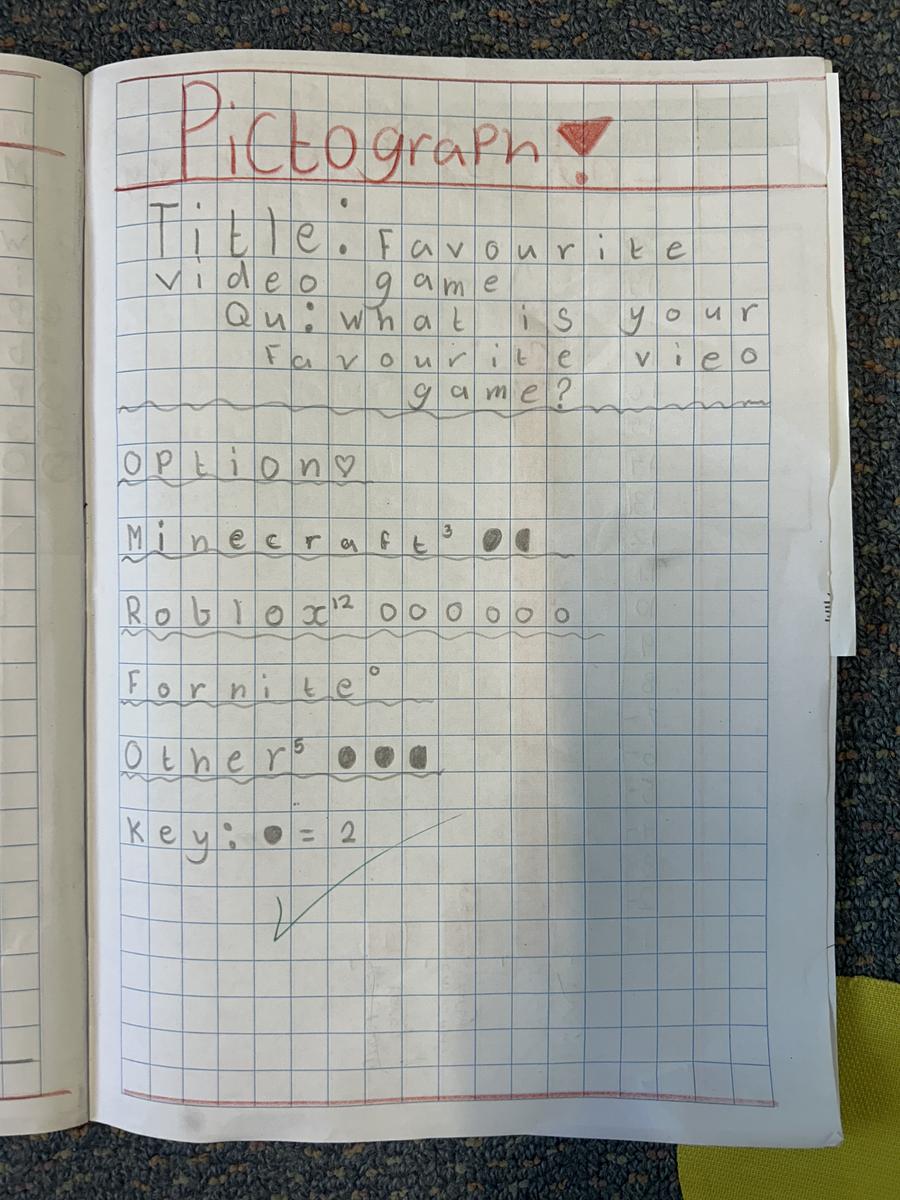 Pictograph!
Title: Favourite
video game
Qu: what is your
Favourite vieo
game?
Option♡
Minecraft³
Roblox¹² 
Fornite⁰
Other⁵
Key: ● = 2